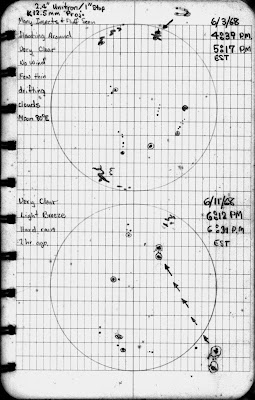 2.4" Unitron/1" Stop
K12.5mm Proj.
Many Insects & Fluff Seen
Floating Around
Very Clear
No Wind
Few thin
drifting
clouds
Moon 80°E
6/3/68
4:39 P.M.
5:17 P.M.
EST
Very Clear
Light Breeze
Hard rain
1 hr ago
6/11/68
6:12 PM
P.M.
EST